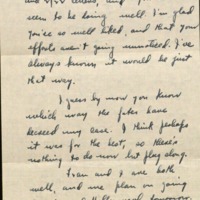 seem to be doing well. I'm glad
you're so well liked, and that your
efforts aren't going unnoticed. I've
always known it would be just
that way.
I guess by now you know
which way the fates have
decided my case. I think perhaps
it was for the best, so there's
nothing to do now but plug along.
Fran and I are both
well, and we plan on going
tomorrow